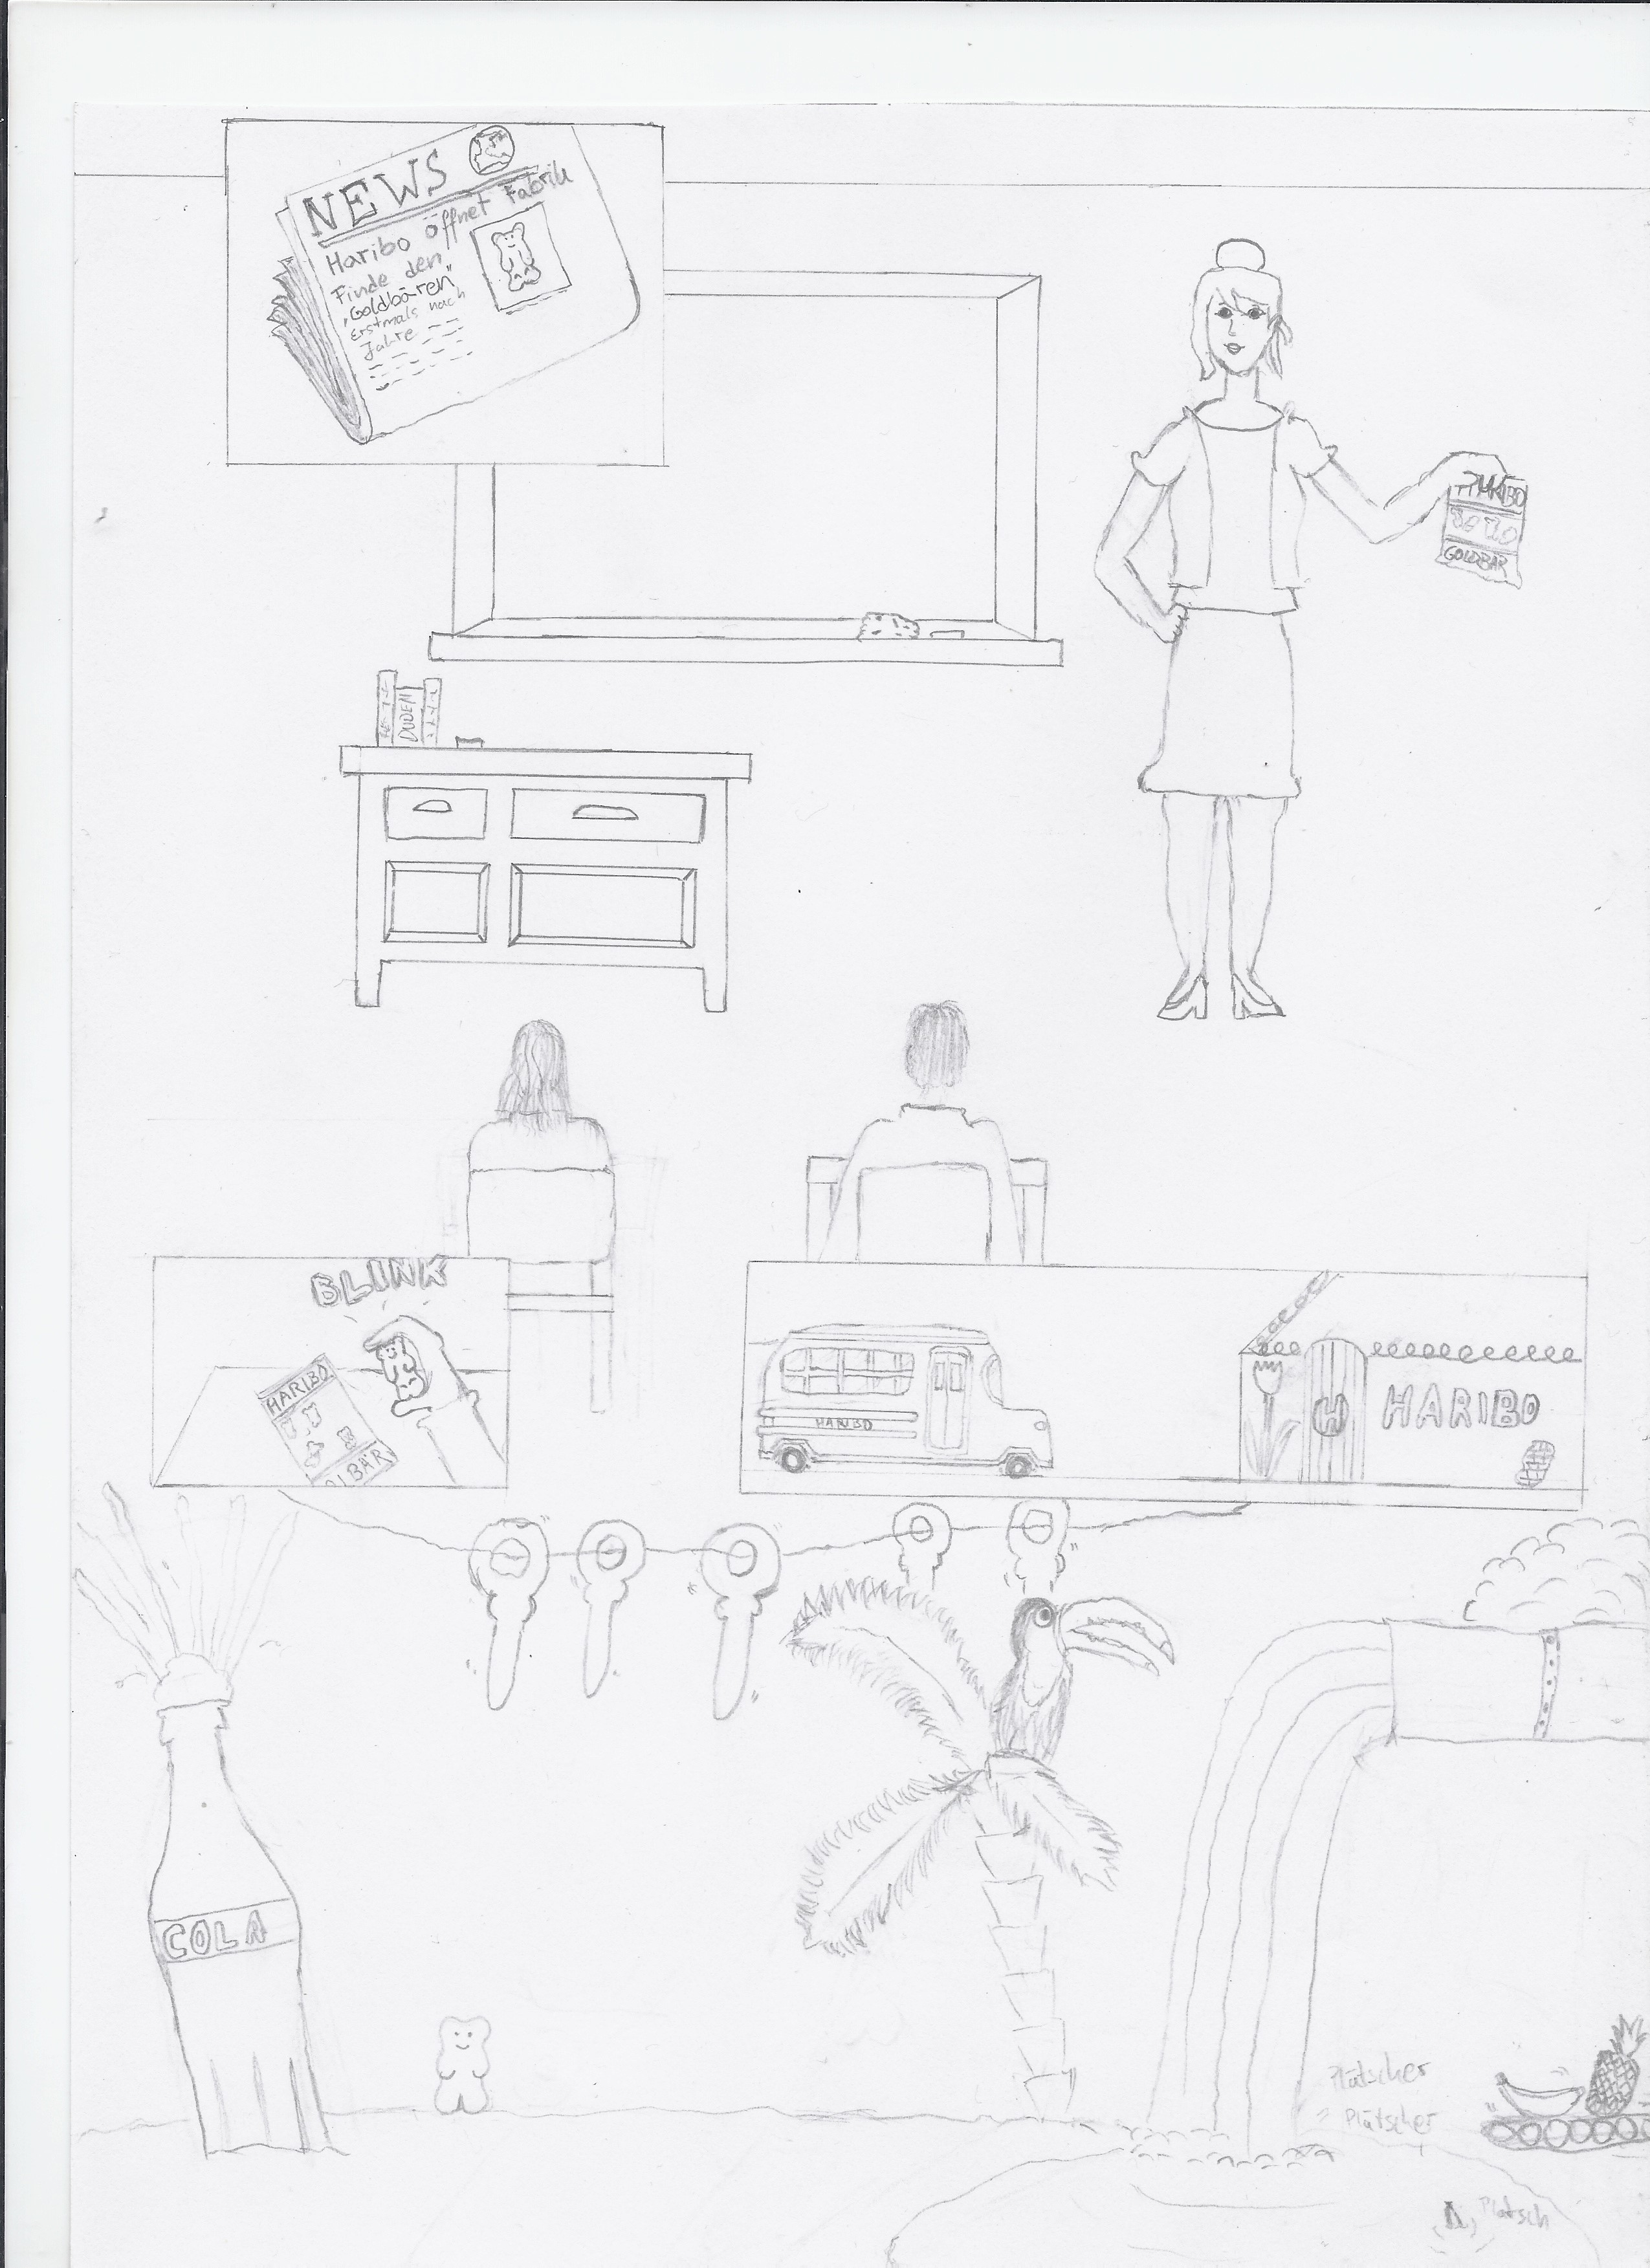 NEWS
Haribo öffnet Fabrik
Finde den
"Goldbären"
Erstmals nach
Jahre
HARIBO
GOLDBÄR
DUDEN
BLINK
HARIBO
OLBÄR
HARIBO
H
HARIBO
COLA
Plätscher
Plätscher
Platsch